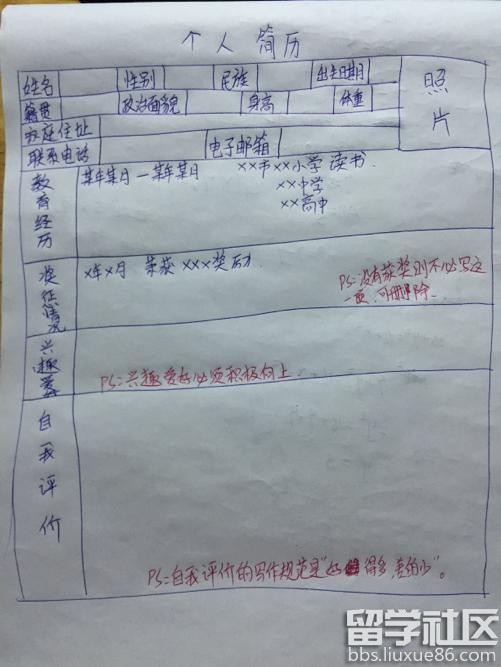 个人简历
姓名 性别 民族 出生日期 照片
籍贯 政治面貌 身高 体重
家庭住址
联系电话 电子邮箱
教育经历 某年某月一某年某月 ××市××小学 读书
××中学
××高中
奖征情况 ×年×月 荣获 ×××奖历
PS:没有获奖则不必写这
一页.可删除.
兴趣爱好
PS:兴趣爱好必须积极向上
自我评价
PS:自我评价的写作规范是"好 得多,差的少"。
留学社区
bbs.liuxue86.com